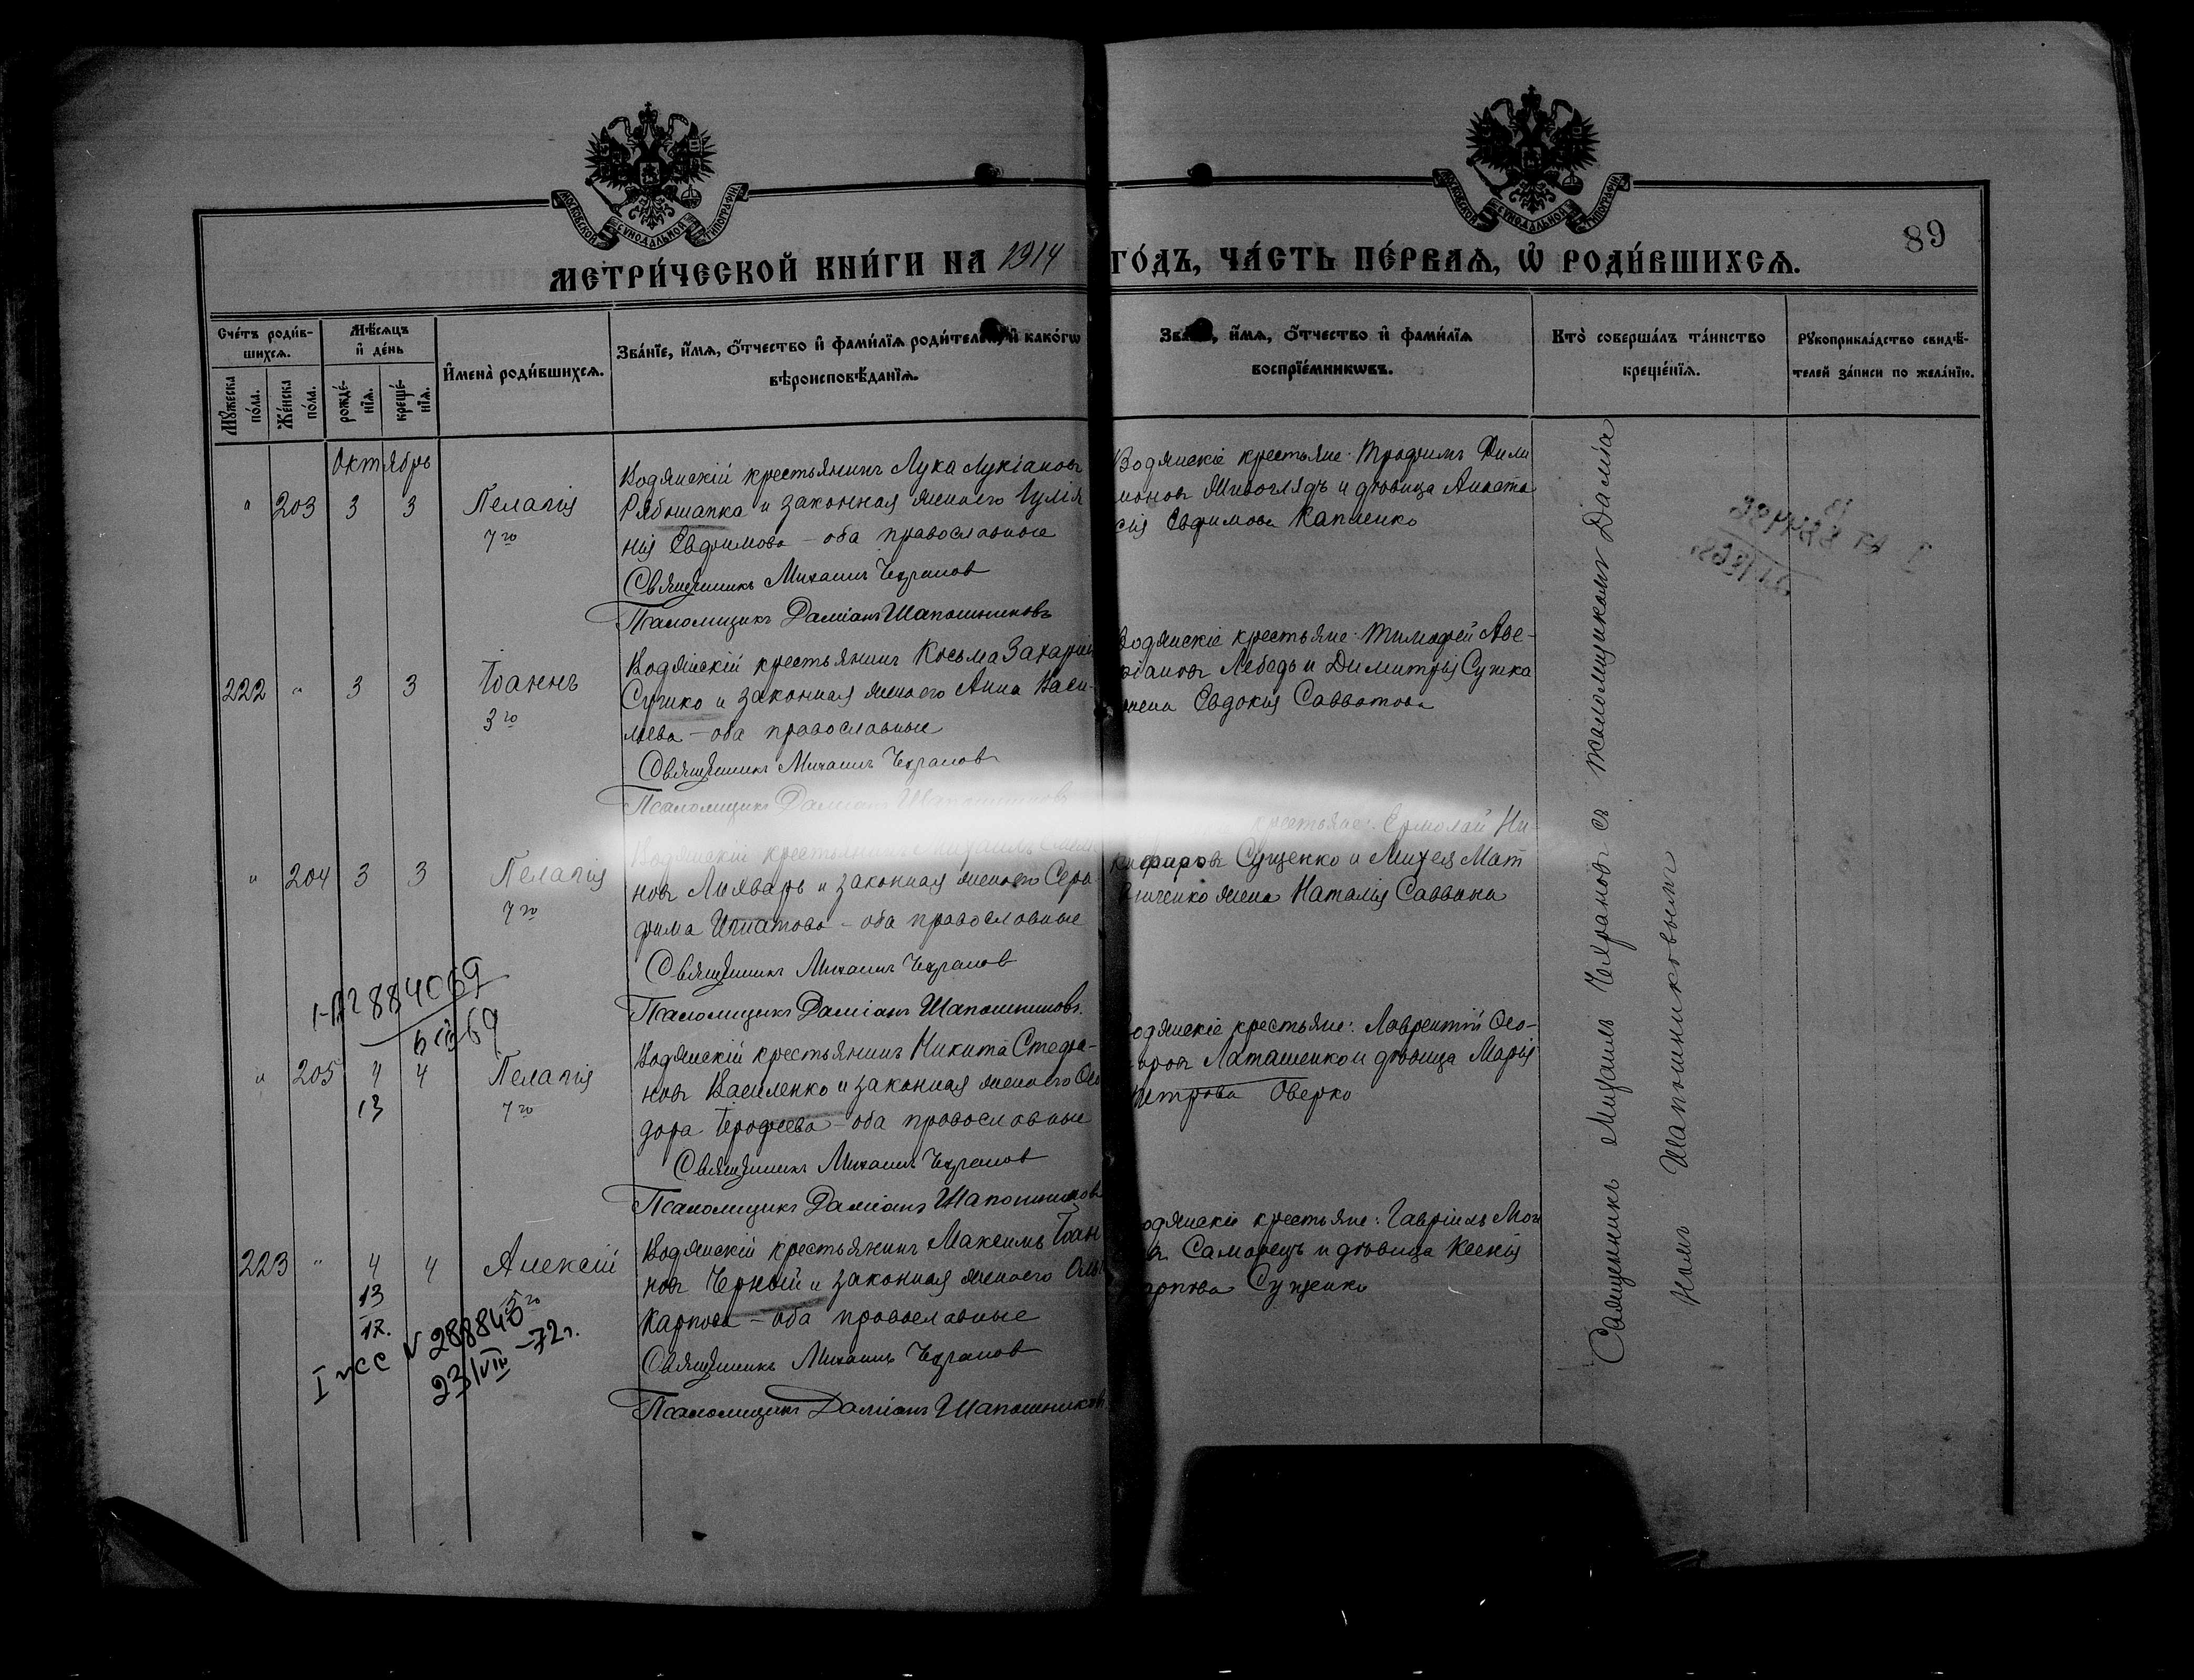 МОСКОВСКОЙ СѴНОДАЛЬНОЙ ТИПОГРАФІИ
МОСКОВСКОЙ СѴНОДАЛЬНОЙ ТИПОГРАФІИ
89
МЕТРИ́ЧЕСКОЙ КНИ́ГИ НА 1914 ГО́ДЪ, ЧА́СТЬ ПЕ́РВАѦ, Ѡ҆ РОДИ́ВШИХСѦ.
Сче́тъ роди́в-
шихсѧ.
Мꙋ́жеска по́ла.
Же́нска по́ла.
Мѣ́сѧцъ и҆ де́нь
рожде́-
нїѧ.
креще́-
нїѧ.
И҆мена̀ роди́вшихсѧ.
Зва́нїе, и҆́мѧ, ѻ҆́тчество и҆ фами́лїѧ роди́телей, и҆ како́гѡ
вѣроисповѣ́данїѧ.
Зва́нїе, и҆́мѧ, ѻ҆́тчество и҆ фами́лїѧ
воспрїе́мникѡвъ.
Кто̀ соверша́лъ та́инство
креще́нїѧ.
Рꙋкоприкла́дство свидѣ́-
телей за́писи по жела́нїю.
Октябрь
" 203 3 3 Пелагія
7го
Водянскій крестьянинъ Лука Лукіановъ
Рябошапка и законная жена его Іуліа
нія Евфимова – оба православные
Священникъ Михаилъ Чехранов
Псаломщикъ Даміанъ Шапошниковъ
Водянскіе крестьяне: Трофимъ Фили
моновъ Живоглядъ и дѣвица Анаста
сія Евфимова Капленко
222 " 3 3 Іоаннъ
3го
Водянскій крестьянинъ Косьма Захаріев
Сушко и законная жена его Анна Васи-
льева – оба православные
Священникъ Михаилъ Чехранов
Псаломщикъ Даміанъ Шапошников
Водянскіе крестьяне: Тимофей Аве-
ркіановъ Лебедь и Димитрія Сушка
жена Евдокія Савватова
" 204 3 3 Пелагія
7го
Водянскій крестьянинъ Михаилъ
новъ Лихварь и законная жена его Сера
фима Игнатова – оба православные
Священникъ Михаилъ Чехранов
Псаломщикъ Даміанъ Шапошниковъ.
крестьяне: Ермолай Ни-
кифоровъ Сущенко и Михея Мат
вiиченко жена Наталія Саввина
884069
" 205 4 4 Пелагія
13 7го
Водянскій крестьянинъ Никита Стефа-
новъ Василенко и законная жена его Ѳео
дора Іерофеева – оба православные
Священникъ Михаилъ Чехранов
Псаломщикъ Даміанъ Шапошников
Водянскіе крестьяне: Лаврентій Ѳео-
доровъ Латашенко и дѣвица Марія
Петрова Оверко
223 " 4 4 Алексій
13 5го
12.
I псс N 288845
23/VIII –72г.
Водянскій крестьянинъ Максимъ Іоан
новъ Черный и законная жена его
Карпова – оба православные
Священникъ Михаилъ Чехранов
Псаломщикъ Даміанъ Шапошников
Водянскіе крестьяне: Гавріилъ
Саморецъ и дѣвица Ксенія
Карпова Сущенко
Священникъ Михаилъ Чехранов съ псаломщикомъ Даміа
номъ Шапошниковымъ